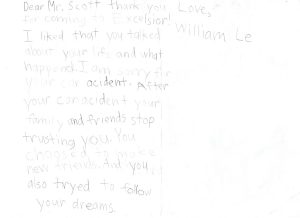 Dear Mr. Scott thank you
for coming to Excelsior!
I liked that you talked
about your life and what
happened. I am sorry for
your car acident. After
your car acident your
family and friends stop
trusting you. You
choosed to make
new friends. And you
also tryed to follow
your dreams.
Love,
William Le